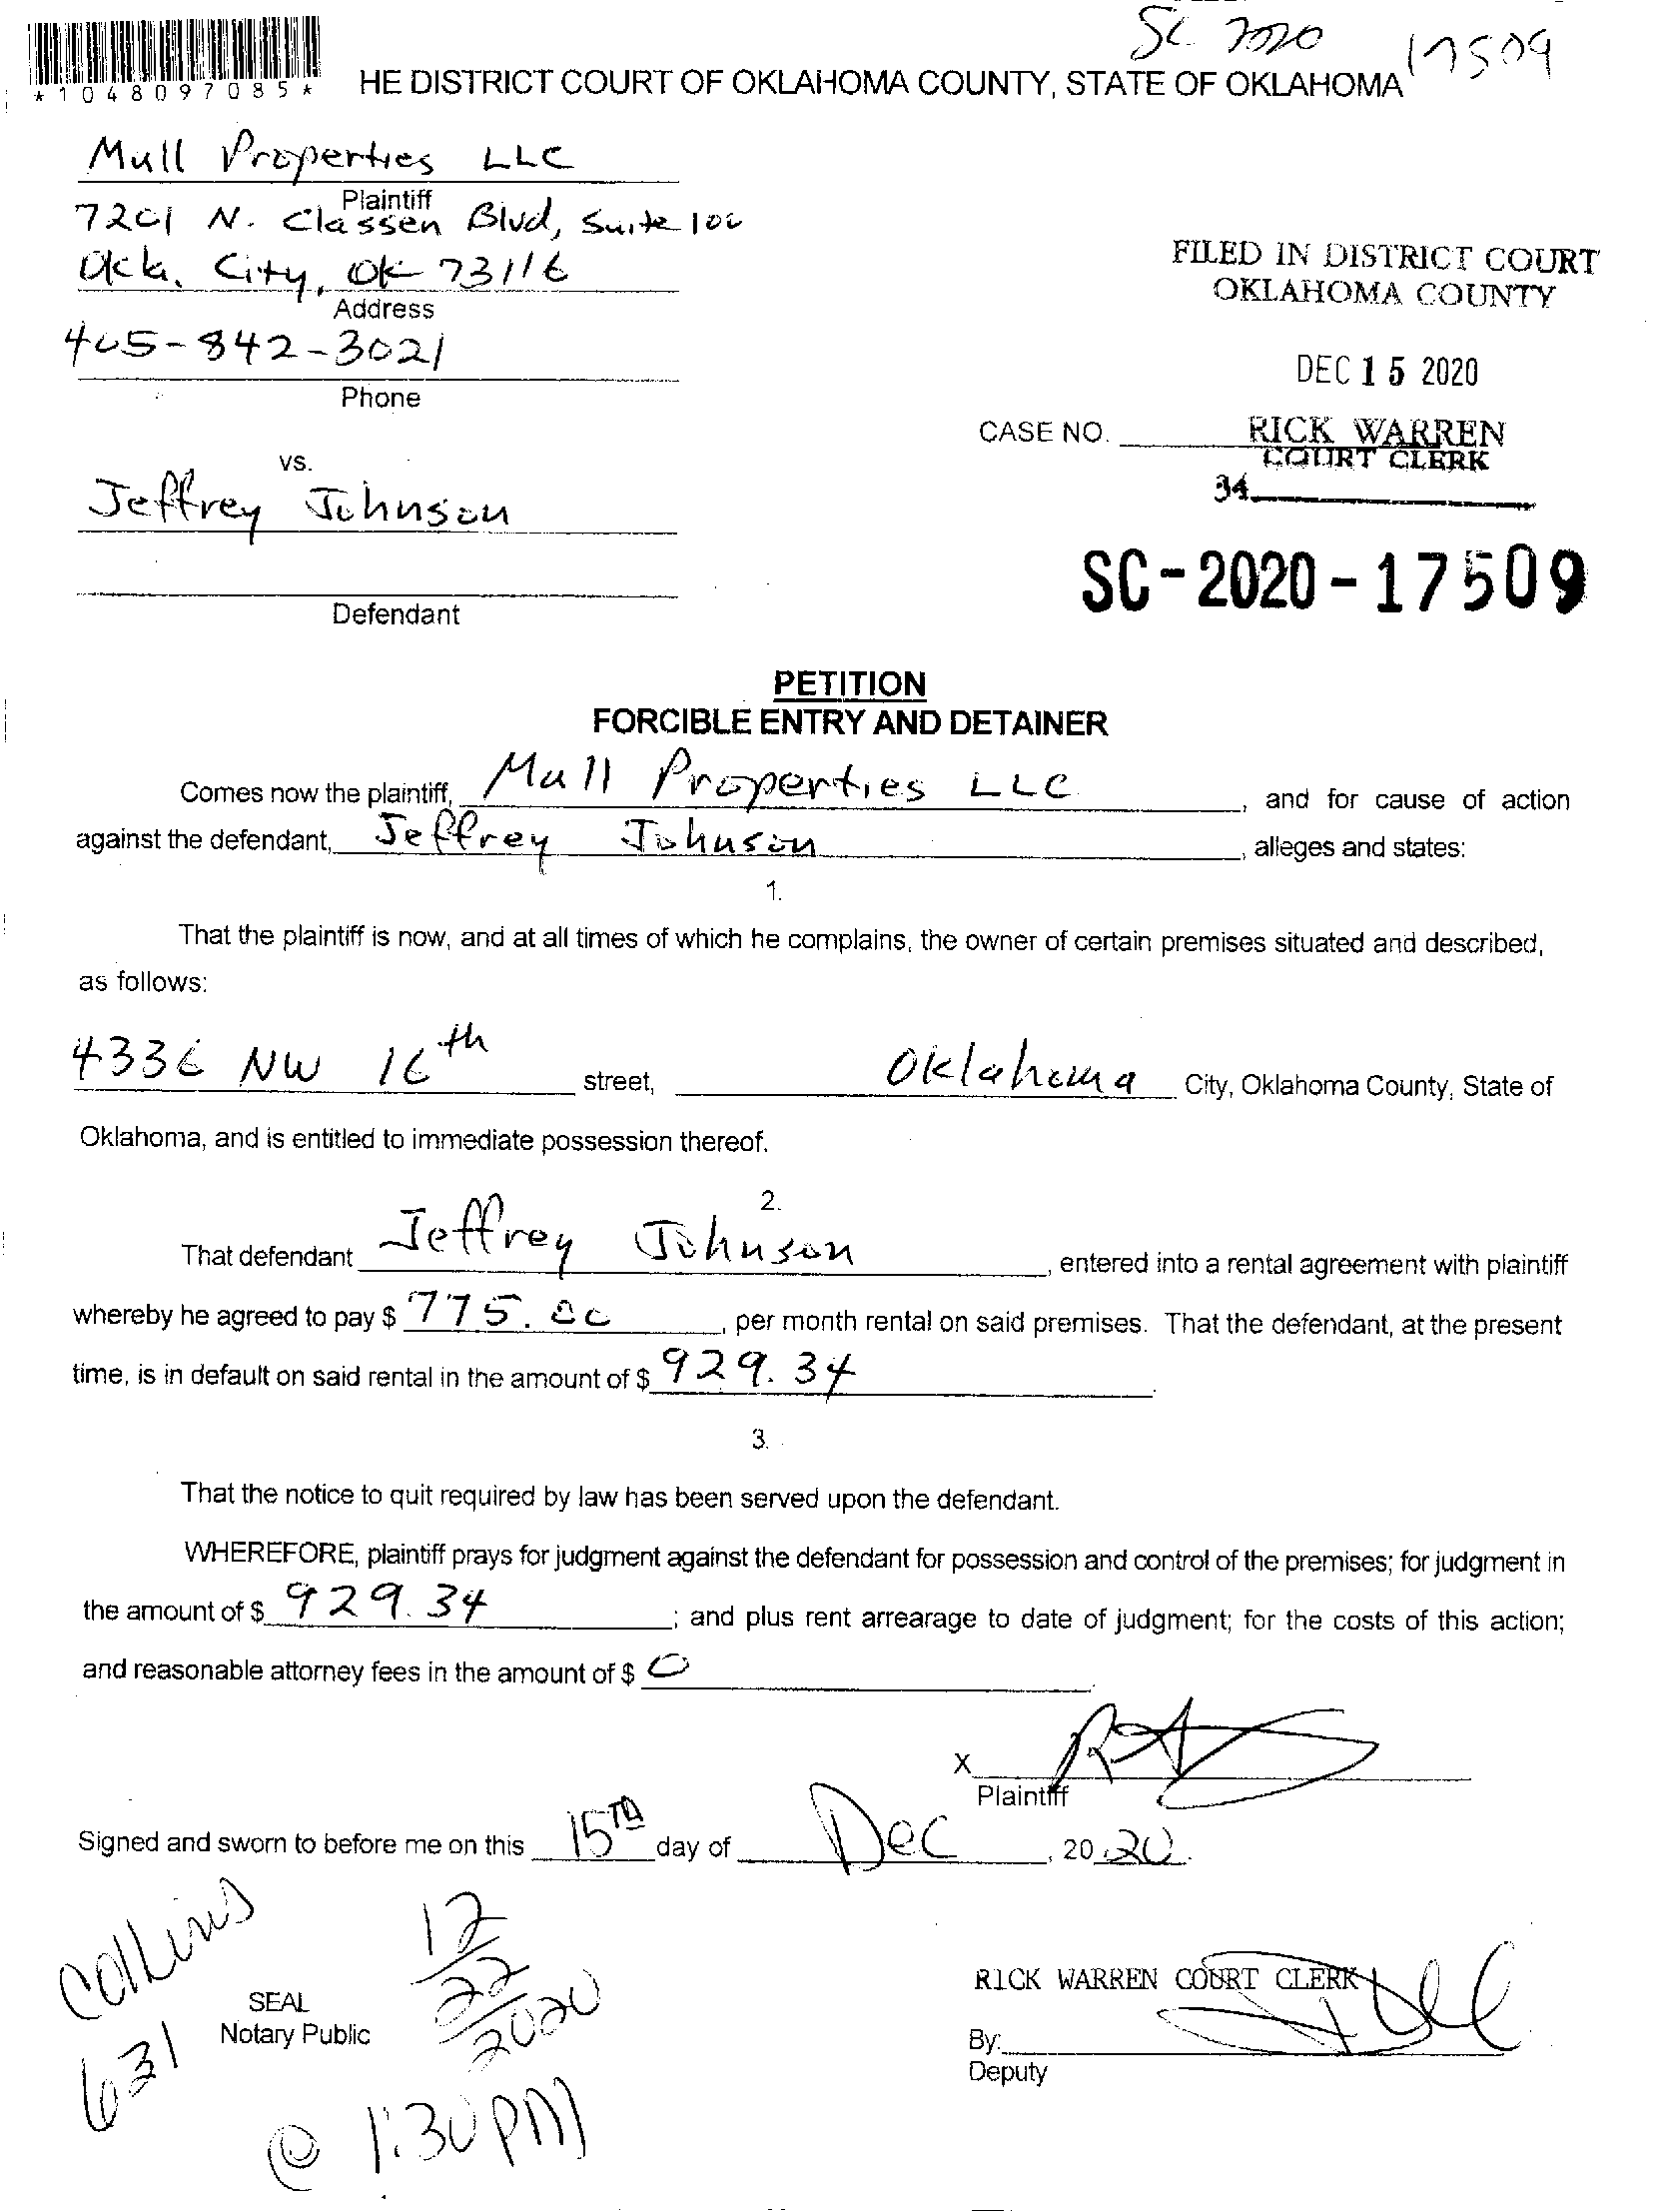 SC 2020 17509
*1048097085*
HE DISTRICT COURT OF OKLAHOMA COUNTY, STATE OF OKLAHOMA
Mull Properties LLC
Plaintiff
7201 N. Classen Blvd, Suite 100
Okla. City, OK 73116
Address
405-842-3021
Phone
FILED IN DISTRICT COURT
OKLAHOMA COUNTY
DEC 15 2020
CASE NO.
RICK WARREN
COURT CLERK
34
vs.
Jeffrey Johnson
Defendant
SC-2020-17509
PETITION
FORCIBLE ENTRY AND DETAINER
Comes now the plaintiff, Mull Properties LLC, and for cause of action
against the defendant, Jeffrey Johnson, alleges and states:
1.
That the plaintiff is now, and at all times of which he complains, the owner of certain premises situated and described,
as follows:
4336 NW 16th street, Oklahoma City, Oklahoma County, State of
Oklahoma, and is entitled to immediate possession thereof.
2.
That defendant Jeffrey Johnson, entered into a rental agreement with plaintiff
whereby he agreed to pay $ 775.00, per month rental on said premises. That the defendant, at the present
time, is in default on said rental in the amount of $ 929.34.
3.
That the notice to quit required by law has been served upon the defendant.
WHEREFORE, plaintiff prays for judgment against the defendant for possession and control of the premises; for judgment in
the amount of $ 929.34; and plus rent arrearage to date of judgment; for the costs of this action;
and reasonable attorney fees in the amount of $ 0.
X
Plaintiff
Signed and sworn to before me on this 15TH day of Dec, 20 20.
Collins
631
12/22/2020
@ 1:30PM
SEAL
Notary Public
RICK WARREN COURT CLERK
By:
Deputy